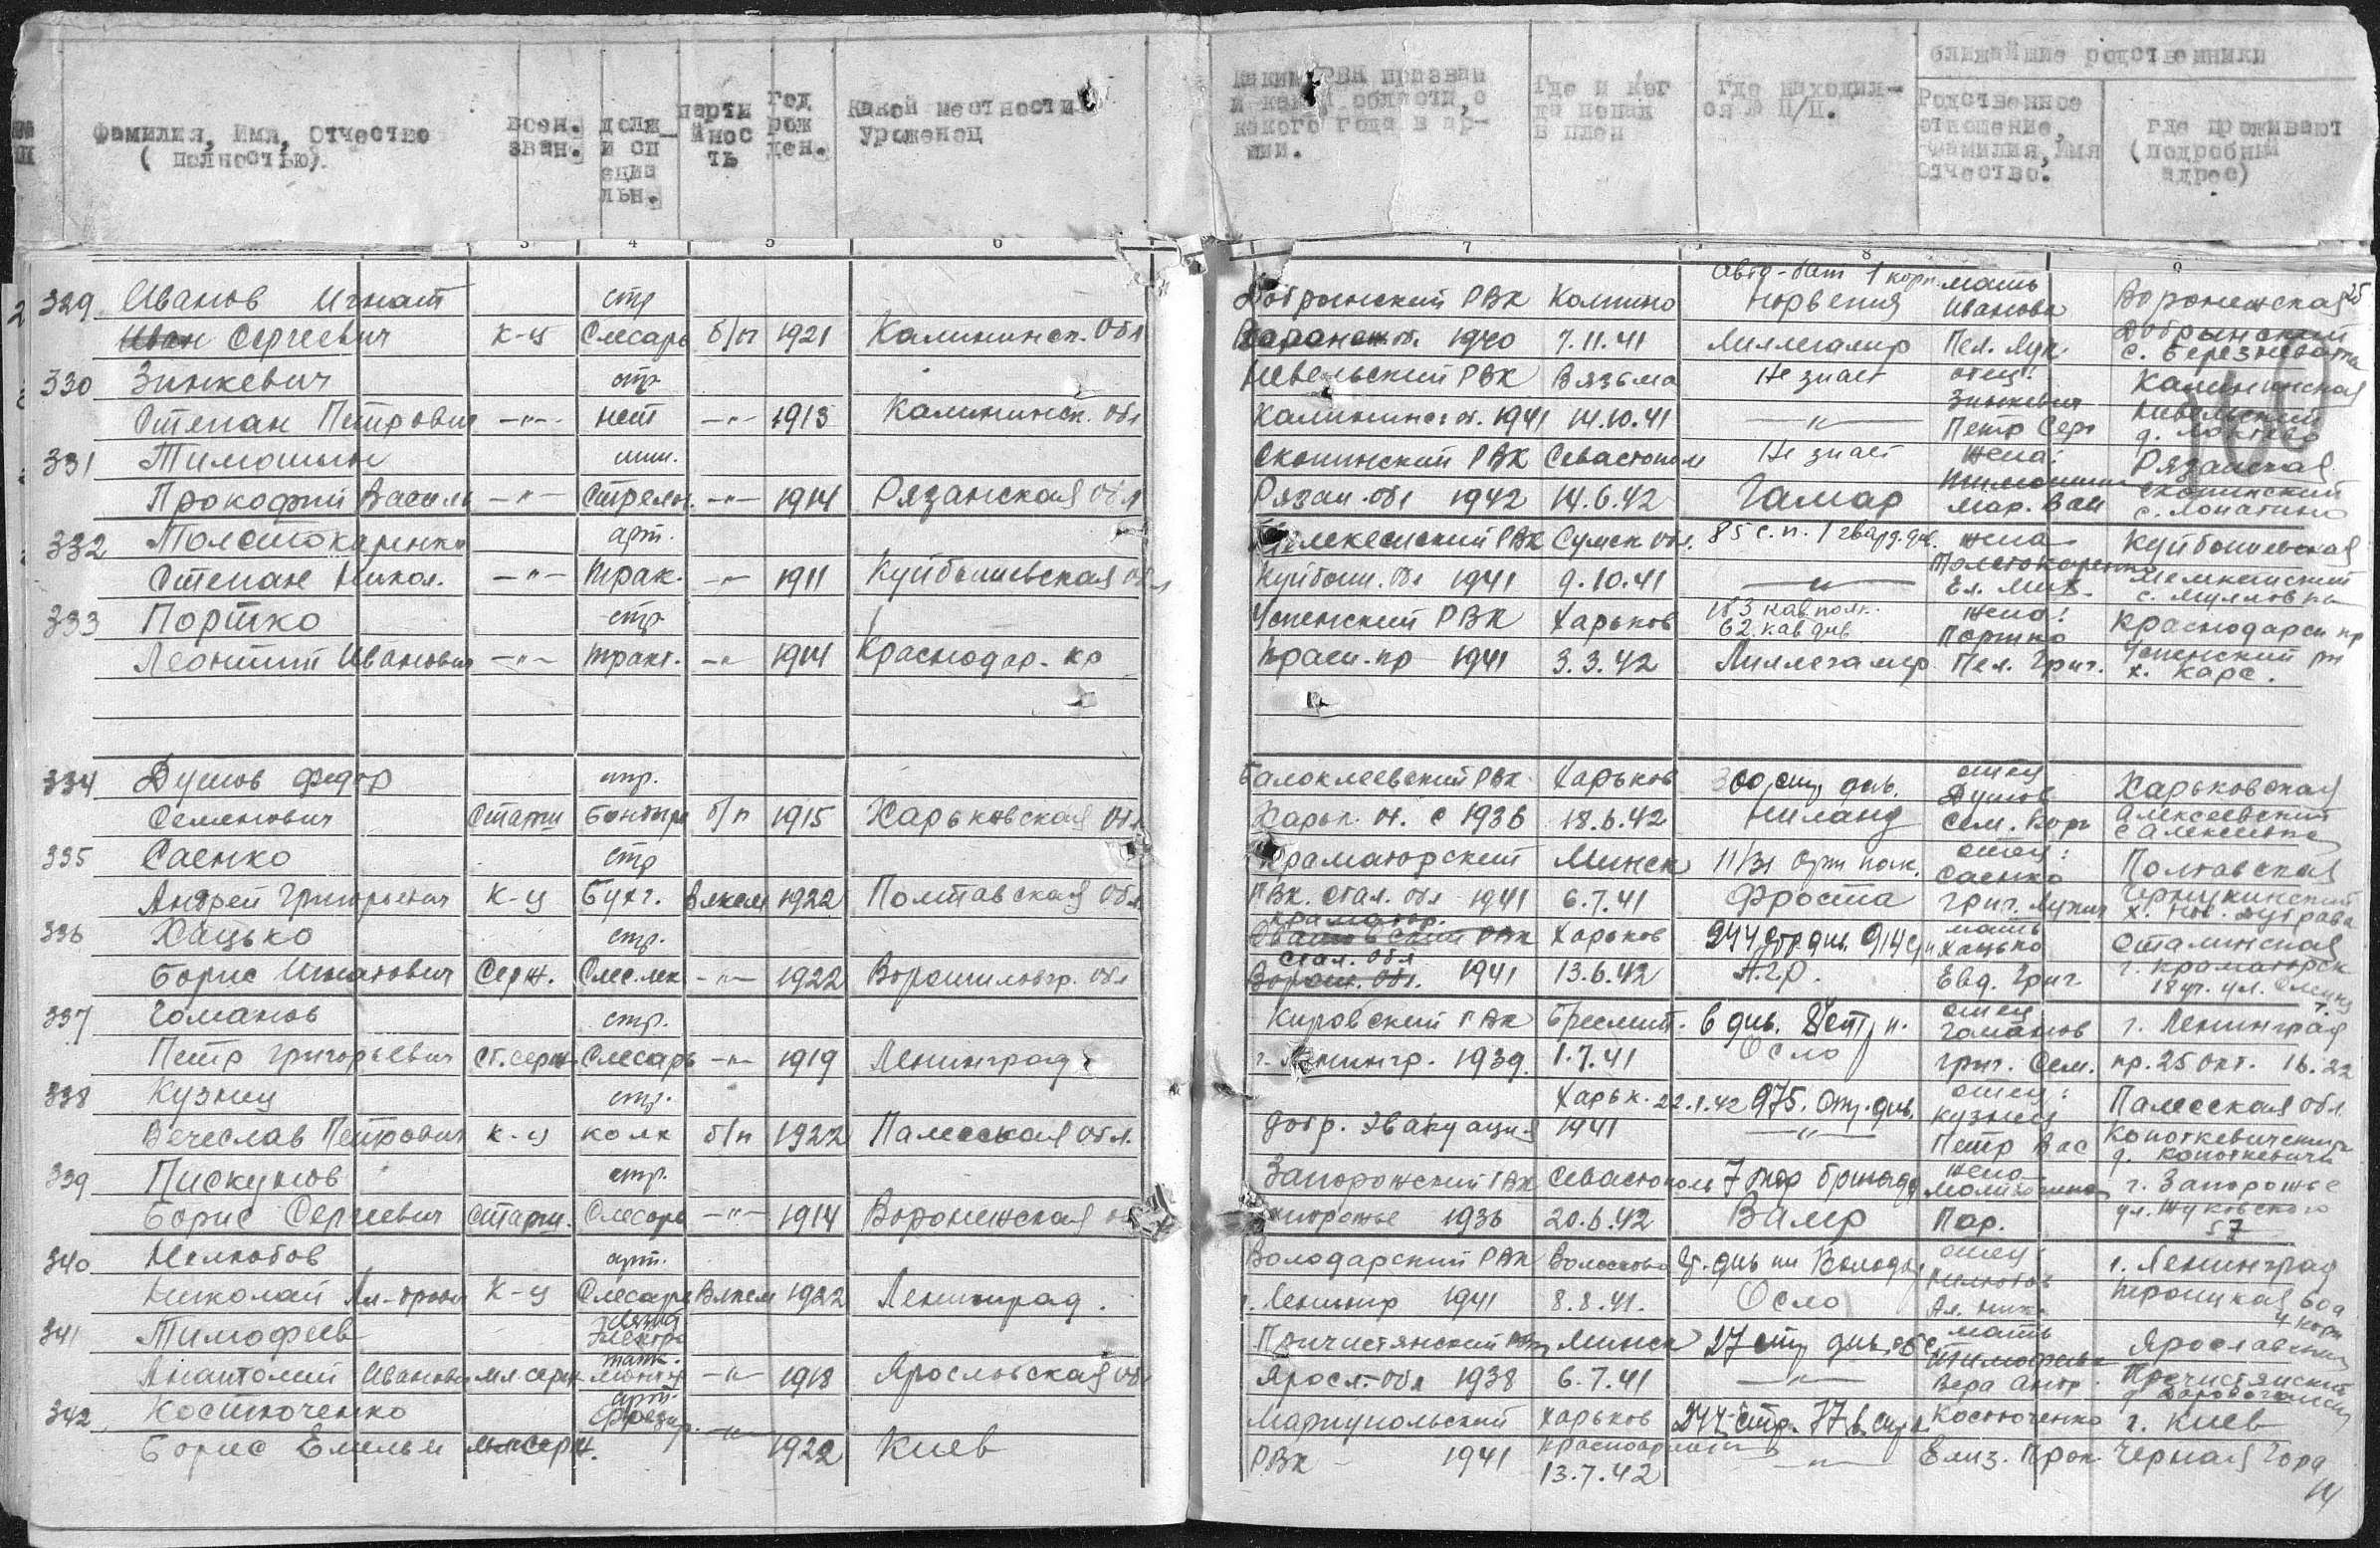 Фамилия, Имя, Отчество (полностью)
воен. зван.
долж и специальн.
партийность
год рожден.
какой местности уроженец
каким РВК призван и какой области, с какого года в армии.
Где и когда попал в плен
где находился в п/п.
ближайшие родственники
Родственное отношение, фамилия, имя отчество.
где проживают (подробный адрес)
3 4 5 6 7 8 9
329 Иванов Игнат стр Добрынский РВК Колпино авто-бат 1 корп мать Воронежская
Иван Сергеевич к-ц Слесарь б/п 1921 Калининск. Обл Воронеж. об. 1940 7.11.41 Норвегия Лиллегамер Иванова Пел. Лук. Добрынский с. Березнеговка
330 Зинкевич стр Невельский РВК Вязьма Не знает отец: Калининская
Степан Петрович -"- нет -"- 1913 Калининск. обл Калининск. об. 1941 14.10.41 -"- Зинкевич Петр Серг Невельский д.
331 Тимошин мин. Скопинский РВК Севастополь Не знает жена: Рязанская
Прокофий Василь -"- Стрелоч. -"- 1914 Рязанская обл Рязан. обл 1942 14.6.42 Гамар Тимошина Мар.Ван Скопинский с. Лопатино
332 Толстокоренко арт. Мелекесский РВК Сумск обл. 85 с.п. 1 гвард. див. жена Куйбышевская
Степан Никол. -"- трак. -"- 1911 Куйбышевская обл Куйбыш. Обл 1941 9.10.41 -"- Толстокоренко Ел. Мих. Мелекесский с. Мулловка
333 Портко стр. Успенский РВК Харьков 183 кав полк. 62 кав див жена: Краснодарск кр
Леонтий Иванович -"- тракт. -"- 1914 Краснодар. кр Красн. кр 1941 3.3.42 Лиллегамер Портко Пел. Григ. Успенский рн х. Карс.
334 Душов Федор стр. Балаклеевский РВК Харьков 300 стр див. отец Харьковская
Семенович Старш Бондарь б/п 1915 Харьковская Обл Харьк. об. с 1936 18.6.42 Ниланд Душов Сем. Кор Алексеевский с Алексеевка
335 Саенко стр Краматорский Минск 11/31 арт полк. отец: Полтавская
Андрей Григорьевич к-ц Бухг. Влксм 1922 Полтавская Обл РВК. Стал. обл 1941 6.7.41 Фроста Саенко Григ. Лукич Чернухинский х. Нов. Дубрава
336 Хацько стр. Краматор. РВК Харьков 244 стр див. 914 с.п. мать Сталинская
Борис Игнатович Серж. Слес. лек -"- 1922 Ворошиловгр. Обл Стал. обл Ворош. Обл. 1941 13.6.42 Агр. Хацько Евд. Григ. г. Краматорск
337 Гоманов стр. Кировский РВК Брест лит. 6 див. 84 стр п. отец г. Ленинград
Петр Григорьевич ст. серж Слесарь -"- 1919 Ленинград г. Ленингр. 1939. 1.7.41 Осло Гоманов Григ. Сем. пр. 25 окт. 16. 22
338 Кузнец стр. Харьк. 22.1.42 975. стр. див. отец: Палесская обл.
Вечеслав Петрович к-ц колх б/п 1922 Палесская Обл. добр. эвакуация 1941 -"- Кузнец Петр Вас Копоткевический д. Копоткевичи
339 Пискунов стр. Запорожский ГВК Севастополь 7 мор бригада жена г. Запорожье
Борис Сергеевич Старш. Слесарь -"- 1914 Воронежская об Запорожье 1936 20.6.42 Валер Пар. ул. Жуковского 57
340 Нелюбов арт. Володарский РВК Волосово отец: г. Ленинград
Николай Ал-дрович К-ц Слесарь Влксм 1922 Ленинград. г. Ленингр 1941 8.8.41. Осло Нелюбов Ал. Ник. Троицкая 60а
341 Тимофеев Электро Пречистянский РВК Минск 27 стр див. мать Ярославская
Анатолий Иванович мл серж монт -"- 1918 Ярославская обл Яросл. Обл 1938 6.7.41 -"- Тимофеева Вера Андр. Пречистянский
342 Костюченко арт. Фрезер. Мариупольский Харьков 244 стр. Костюченко г. Киев
Борис Емельян мл серж. -"- 1922 Киев РВК 1941 Красноармейск 13.7.42 -"- Елиз. Прок. Черная Гора
14